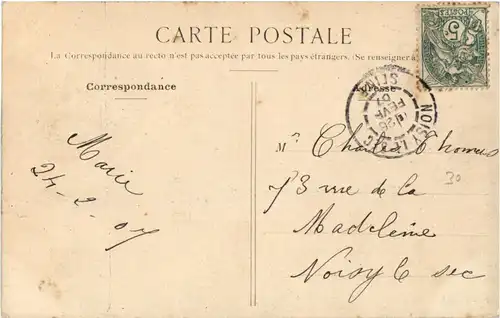 CARTE POSTALE
La Correspondance au recto n'est pas acceptée par tous les pays étrangers. (Se renseigner à
Correspondance
Adresse
POSTES
5
NOISY LE SEC
SEINE
26
FEVR
07
Marie
24-2-07
Mr Charles Thomas
73 rue de la
30
Madeleine
Noisy le sec